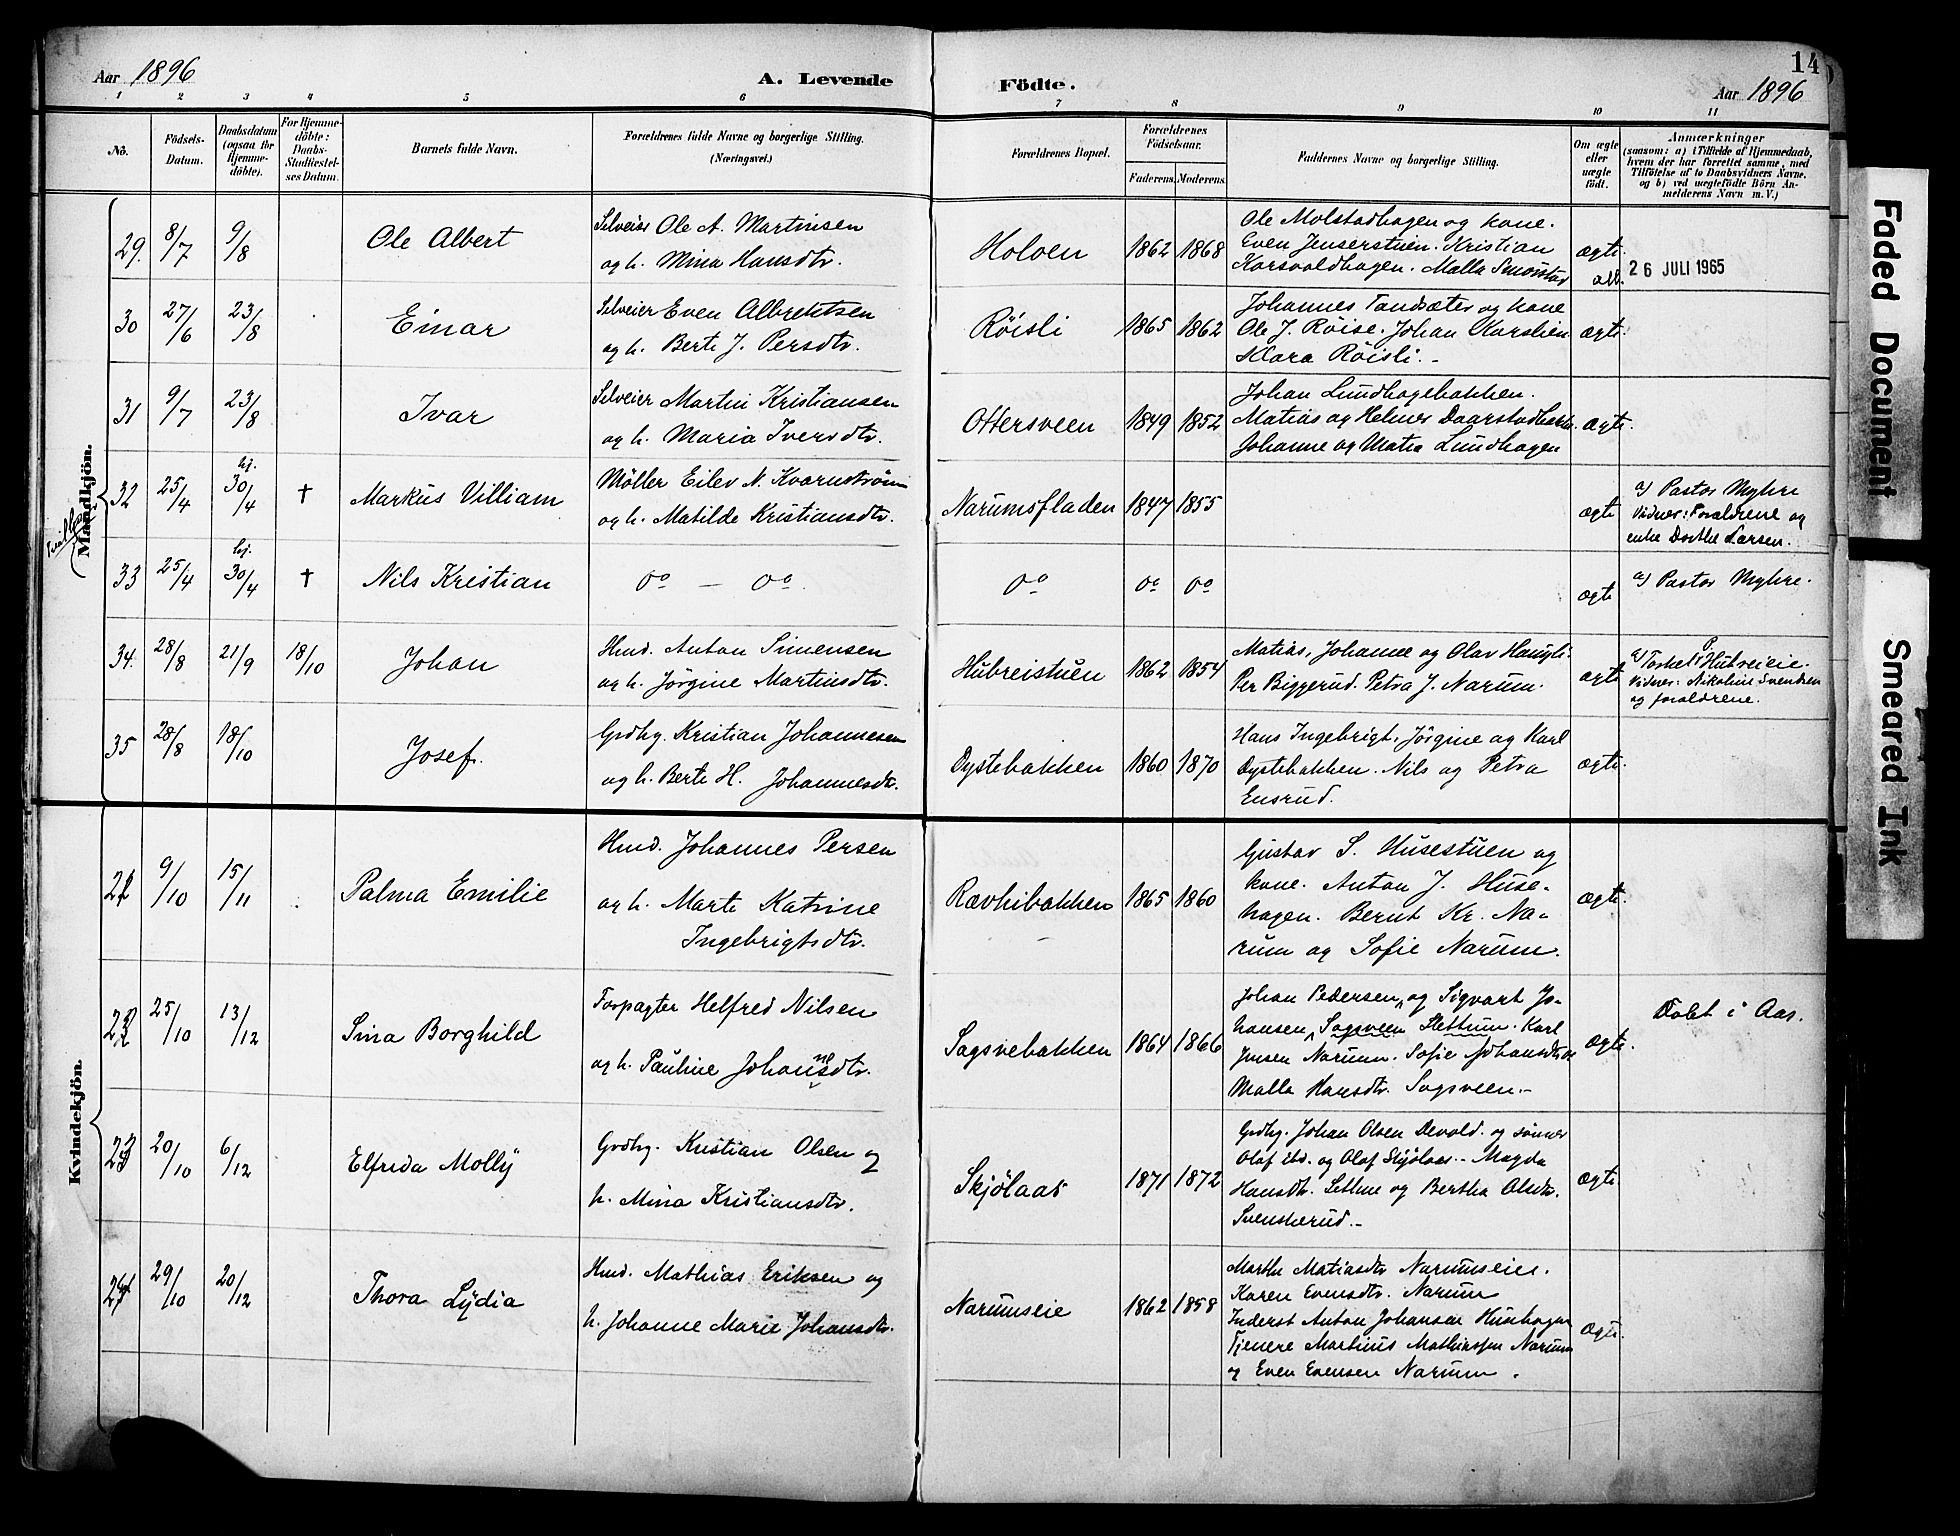 Aar 1896
A. Levende
Födte.
14
Aar 1896
1 2 3 4 5 6 7 8 9 10 11
Nô.
Födsels-
Datum.
Daabsdatum
(ogsaa för
Hjemme-
döbte).
For Hjemme-
döbte:
Daabs-
Stadfæstel-
ses Datum.
Barnets fulde Navn.
Forældrenes fulde Navne og borgerlige Stilling.
(Næringsvei.)
Forældrenes Bopæl.
Forældrenes
Födselsaar.
Faderens. Moderens.
Faddernes Navne og borgerlige Stilling.
Om ægte
eller
uægte
födt.
Anmærkninger
(saasom: a) i Tilfælde af Hjemmedaab,
hvem der har forrettet samme, med
Tilföielse af to Daabsvidners Navne.
og b) ved uægtefödte Börn An-
melderens Navn m. V.)
Mandkjön.
29. 8/7 9/8 Ole Albert
Selveier Ole A. Martinsen
og h. Mina Hansdtr.
Holoen 1862 1868
Ole Molstadhagen og kone.
Even Jenserstuen. Kristian
Korsvoldhagen. Malla Smørstad
ægte
26 JULI 1965
30 27/6 23/8 Einar
Selveier Even Albrektsen
og h. Berte J. Persdtr.
Röisli 1865 1862
Johannes Tandsæter og kone
Ole J. Röise. Johan Karslien
Klara Röisli.-
ægte
31 9/7 23/8 Ivar
Selveier Martin Kristiansen
og h. Maria Iversdtr.
Ottersveen 1849 1852
Johan Lundhagebakken.
Matias og Helmer Daarstadbakk.
Johanne og Matea Lundhagen
ægte.
32 25/4 hj. 30/4 † Markus Villiam
Möller Eilev N. Kvarnström
og h. Matilde Kristiansdtr.
Narumsfladen 1847 1855
ægte
a) Pastor Myhre
Vidner: Forældrene og
enke Dorthe Larsen.
33 25/4 hj. 30/4 † Nils Kristian
do — do.
do do do
ægte
a) Pastor Myhre.
34. 28/8 21/9 18/10 Johan
Hmd. Anton Simensen
og h. Jörgine Martinsdtr.
Hubreistuen 1862 1854
Matias, Johanne og Olav Haugli.
Per Biggerud. Petra J. Narum.
ægte
a) Torkel P. Hubreieie.
Vidner: Nikoline Svendsen
og forældrene.
35 28/8 18/10 Josef.
Grdbg. Kristian Johannesen
og h. Berte H. Johannesdtr.
Dystebakken 1860 1870
Hans Ingebrigt, Jörgine og Karl
Dystebakken. Nils og Petra
Ensrud.
ægte.
Kvindekjön.
9/10 15/11 Palma Emilie
Hmd. Johannes Persen
og h. Marte Katrine
Ingebrigtsdtr.
Rævhibakken 1865 1860
Gustav S. Husestuen og
kone. Anton J. Huse-
hagen. Bernt Kr. Na-
rum og Sofie Narum.
ægte.
25/10 13/12 Sina Borghild
Forpagter Helfred Nilsen
og h. Pauline Johansdtr.
Sagsvebakken 1864 1866
Johan Pedersen, og Sigvart Jo-
hansen, Sagsveen Slettum. Karl
Jensen Narum. Sofie Johansdtr. og
Malla Hansdtr. Sagsveen.-
ægte.
Döbt i Aas.
20/10 6/12 Elfrida Molly
Grdbg. Kristian Olsen og
h. Mina Kristiansdtr.
Skjölaas 1871 1872
Grdbg. Johan Olsen Devold. og sönner
Olaf ibd. og Olaf Skjölaas.- Magda
Hansdtr. Sethne og Bertha Olsdtr.
Svenskerud.-
ægte
29/10 20/12 Thora Lydia
Hmd. Mathias Eriksen og
h. Johanne Marie Johansdtr.
Narumseie 1862 1858
Marthe Matiasdtr Narumseie.
Karen Evensdtr. Narum
Inderst Anton Johansen Husehagen
Tjenere Martinus Mathiassen Narum
og Even Evensen Narum.
ægte.
Faded Document
Smeared Ink